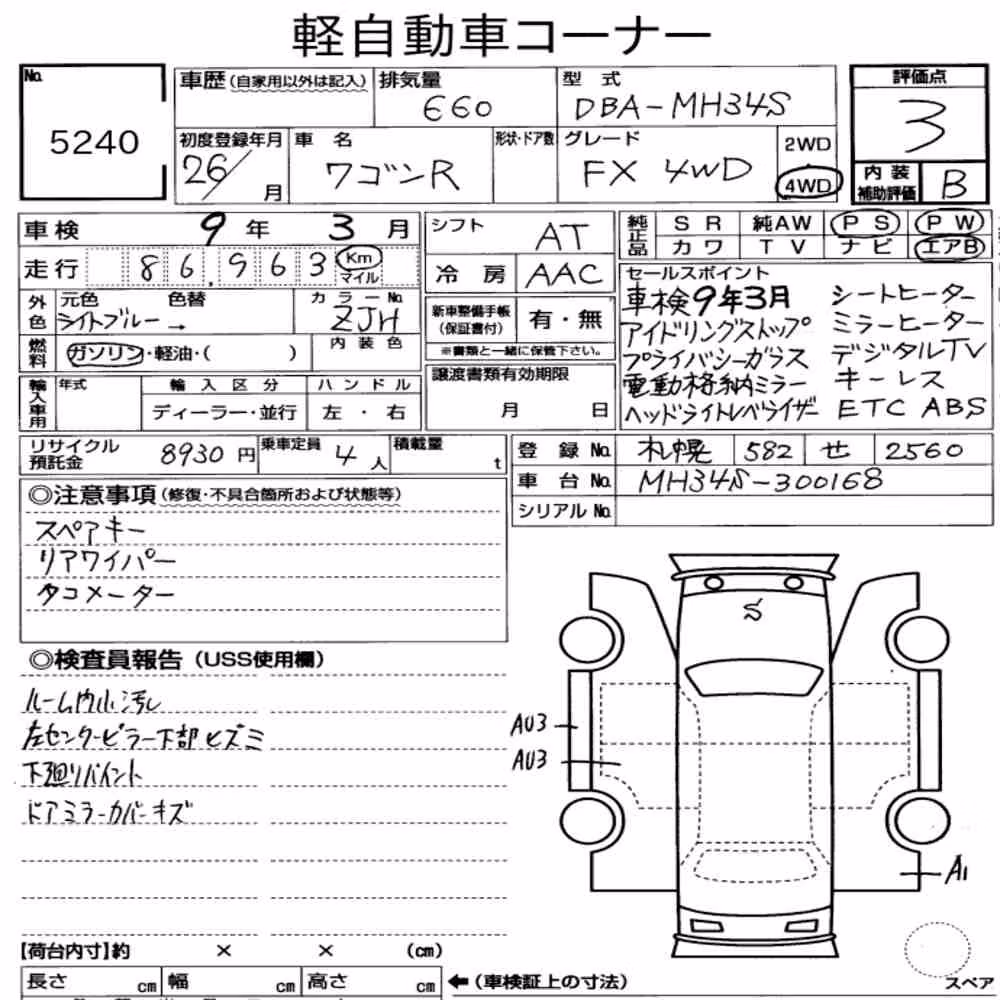 軽自動車コーナー
No.
5240
車歴(自家用以外は記入)
排気量
660
型式
DBA-MH34S
評価点
3
初度登録年月
26/ 月
車名
ワゴンR
形状・ドア数
グレード
FX 4WD
2WD
4WD
内装
補助評価
B
車検 9年 3月
走行 86,963 Km マイル
外色
元色
ライトブルー →
色替
カラーNo.
ZJH
燃料
ガソリン・軽油・( )
内装色
輸入車用
年式
輸入区分
ディーラー・並行
ハンドル
左・右
シフト
AT
冷房
AAC
新車整備手帳
(保証書付)
有・無
※書類と一緒に保管下さい。
譲渡書類有効期限
月 日
純正品
SR 純AW PS PW
カワ TV ナビ エアB
セールスポイント
車検9年3月 シートヒーター
アイドリングストップ ミラーヒーター
プライバシーガラス デジタルTV
電動格納ミラー キーレス
ヘッドライトレベライザー ETC ABS
リサイクル
預託金
8930円
乗車定員
4人
積載量
t
登録No. 札幌 582 せ 2560
車台No. MH34S-300168
シリアルNo.
◎注意事項(修復・不具合箇所および状態等)
スペアキー
リアワイパー
タコメーター
◎検査員報告(USS使用欄)
ルーム内小汚レ
左センターピラー下部ヒズミ
下廻リペイント
ドアミラーカバーキズ
S
AU3
AU3
A1
【荷台内寸】約 × × (cm)
長さ cm 幅 cm 高さ cm
←(車検証上の寸法)
スペア